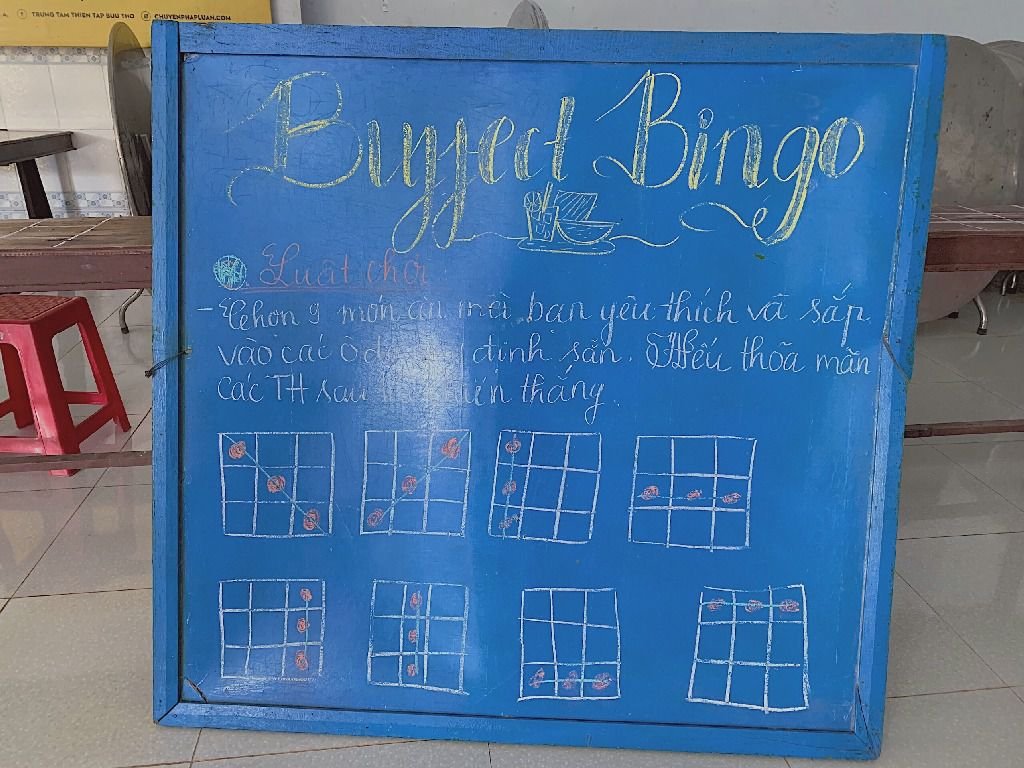 TRUNG TAM THIEN TAP BUU THO CHUYENPHAPLUAN.COM
Buyfect Bingo
Luật chơi
- Chọn 9 món ăn mà bạn yêu thích và sắp
vào các ô định sẵn. Nếu thõa mãn
các TH sau thắng.